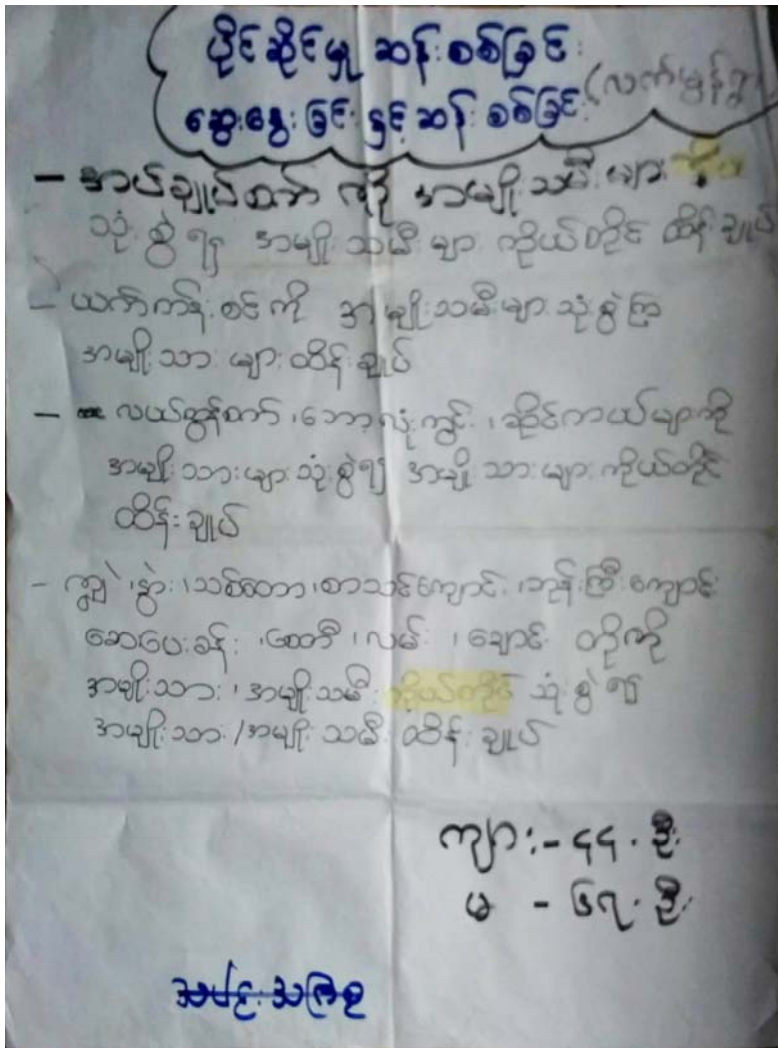 ပိုင်ဆိုင်မှု ဆန်းစစ်ခြင်း
ဆွေးနွေးခြင်းနှင့်ဆန်းစစ်ခြင်း (လက်မွန်ရွာ)
- အပ်ချုပ်စက် ကို အမျိုးသမီးများ
သုံးစွဲ၍ အမျိုးသမီးများ ကိုယ်တိုင် ထိန်းချုပ်
- ယက်ကန်းစင်ကို အမျိုးသမီးများသုံးစွဲကြ
အမျိုးသားများထိန်းချုပ်
- လယ်ထွန်စက်၊ဘောလုံးကွင်း၊ဆိုင်ကယ်များကို
အမျိုးသားများသုံးစွဲ၍ အမျိုးသားများကိုယ်တိုင်
ထိန်းချုပ်
- ကျွဲ၊နွား၊သစ်တော၊စာသင်ကျောင်း၊ဘုန်းကြီးကျောင်း
ဆေးပေးခန်း၊စေတီ၊လမ်း၊ချောင်း တို့ကို
အမျိုးသား၊အမျိုးသမီး ကိုယ်တိုင် သုံးစွဲ၍
အမျိုးသား/အမျိုးသမီး ထိန်းချုပ်
ကျား - ၄၄.ဦး
မ - ၆၇.ဦး